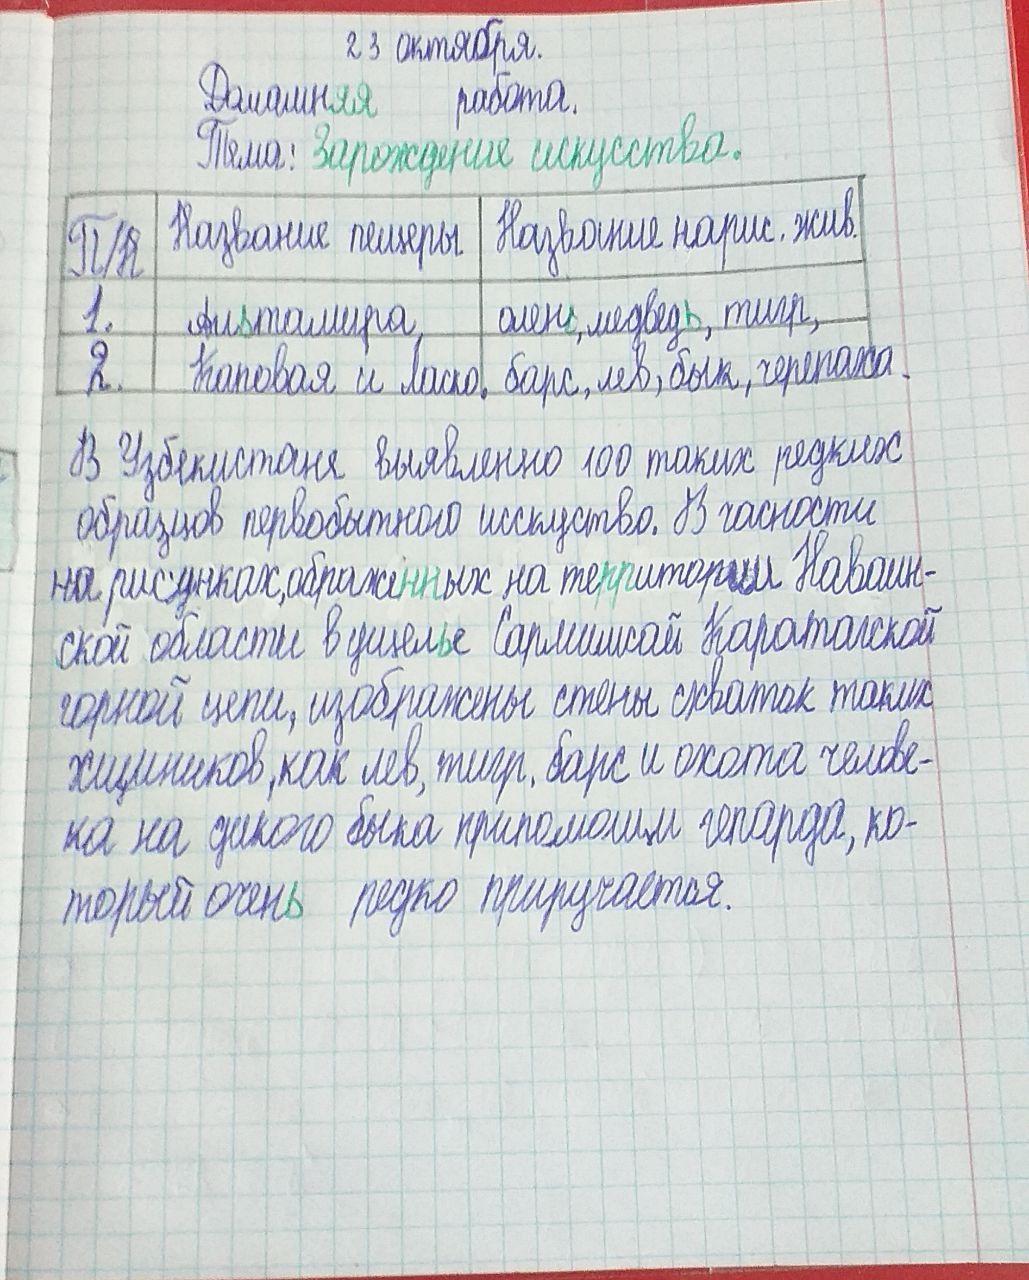 23 октября.
Домашняя работа.
Тема: Зарождение искусства.
П/н Название пещеры Название нарис. жив.
1. Альтамира, олень, медведь, тигр,
2. Каповая и Ласко. барс, лев, бык, черепаха.
В Узбекистане выявленно 100 таких редких
образцов первобытного исскуство. В часности
на рисунках, ображённых на территории Навоин-
ской области в ущелье Сармишсай Караталской
горной цепи, изображены стены схваток таких
хищников, как лев, тигр, барс и охота челове-
ка на дикого быка припомощи гепарда, ко-
торый очень редко приручается.